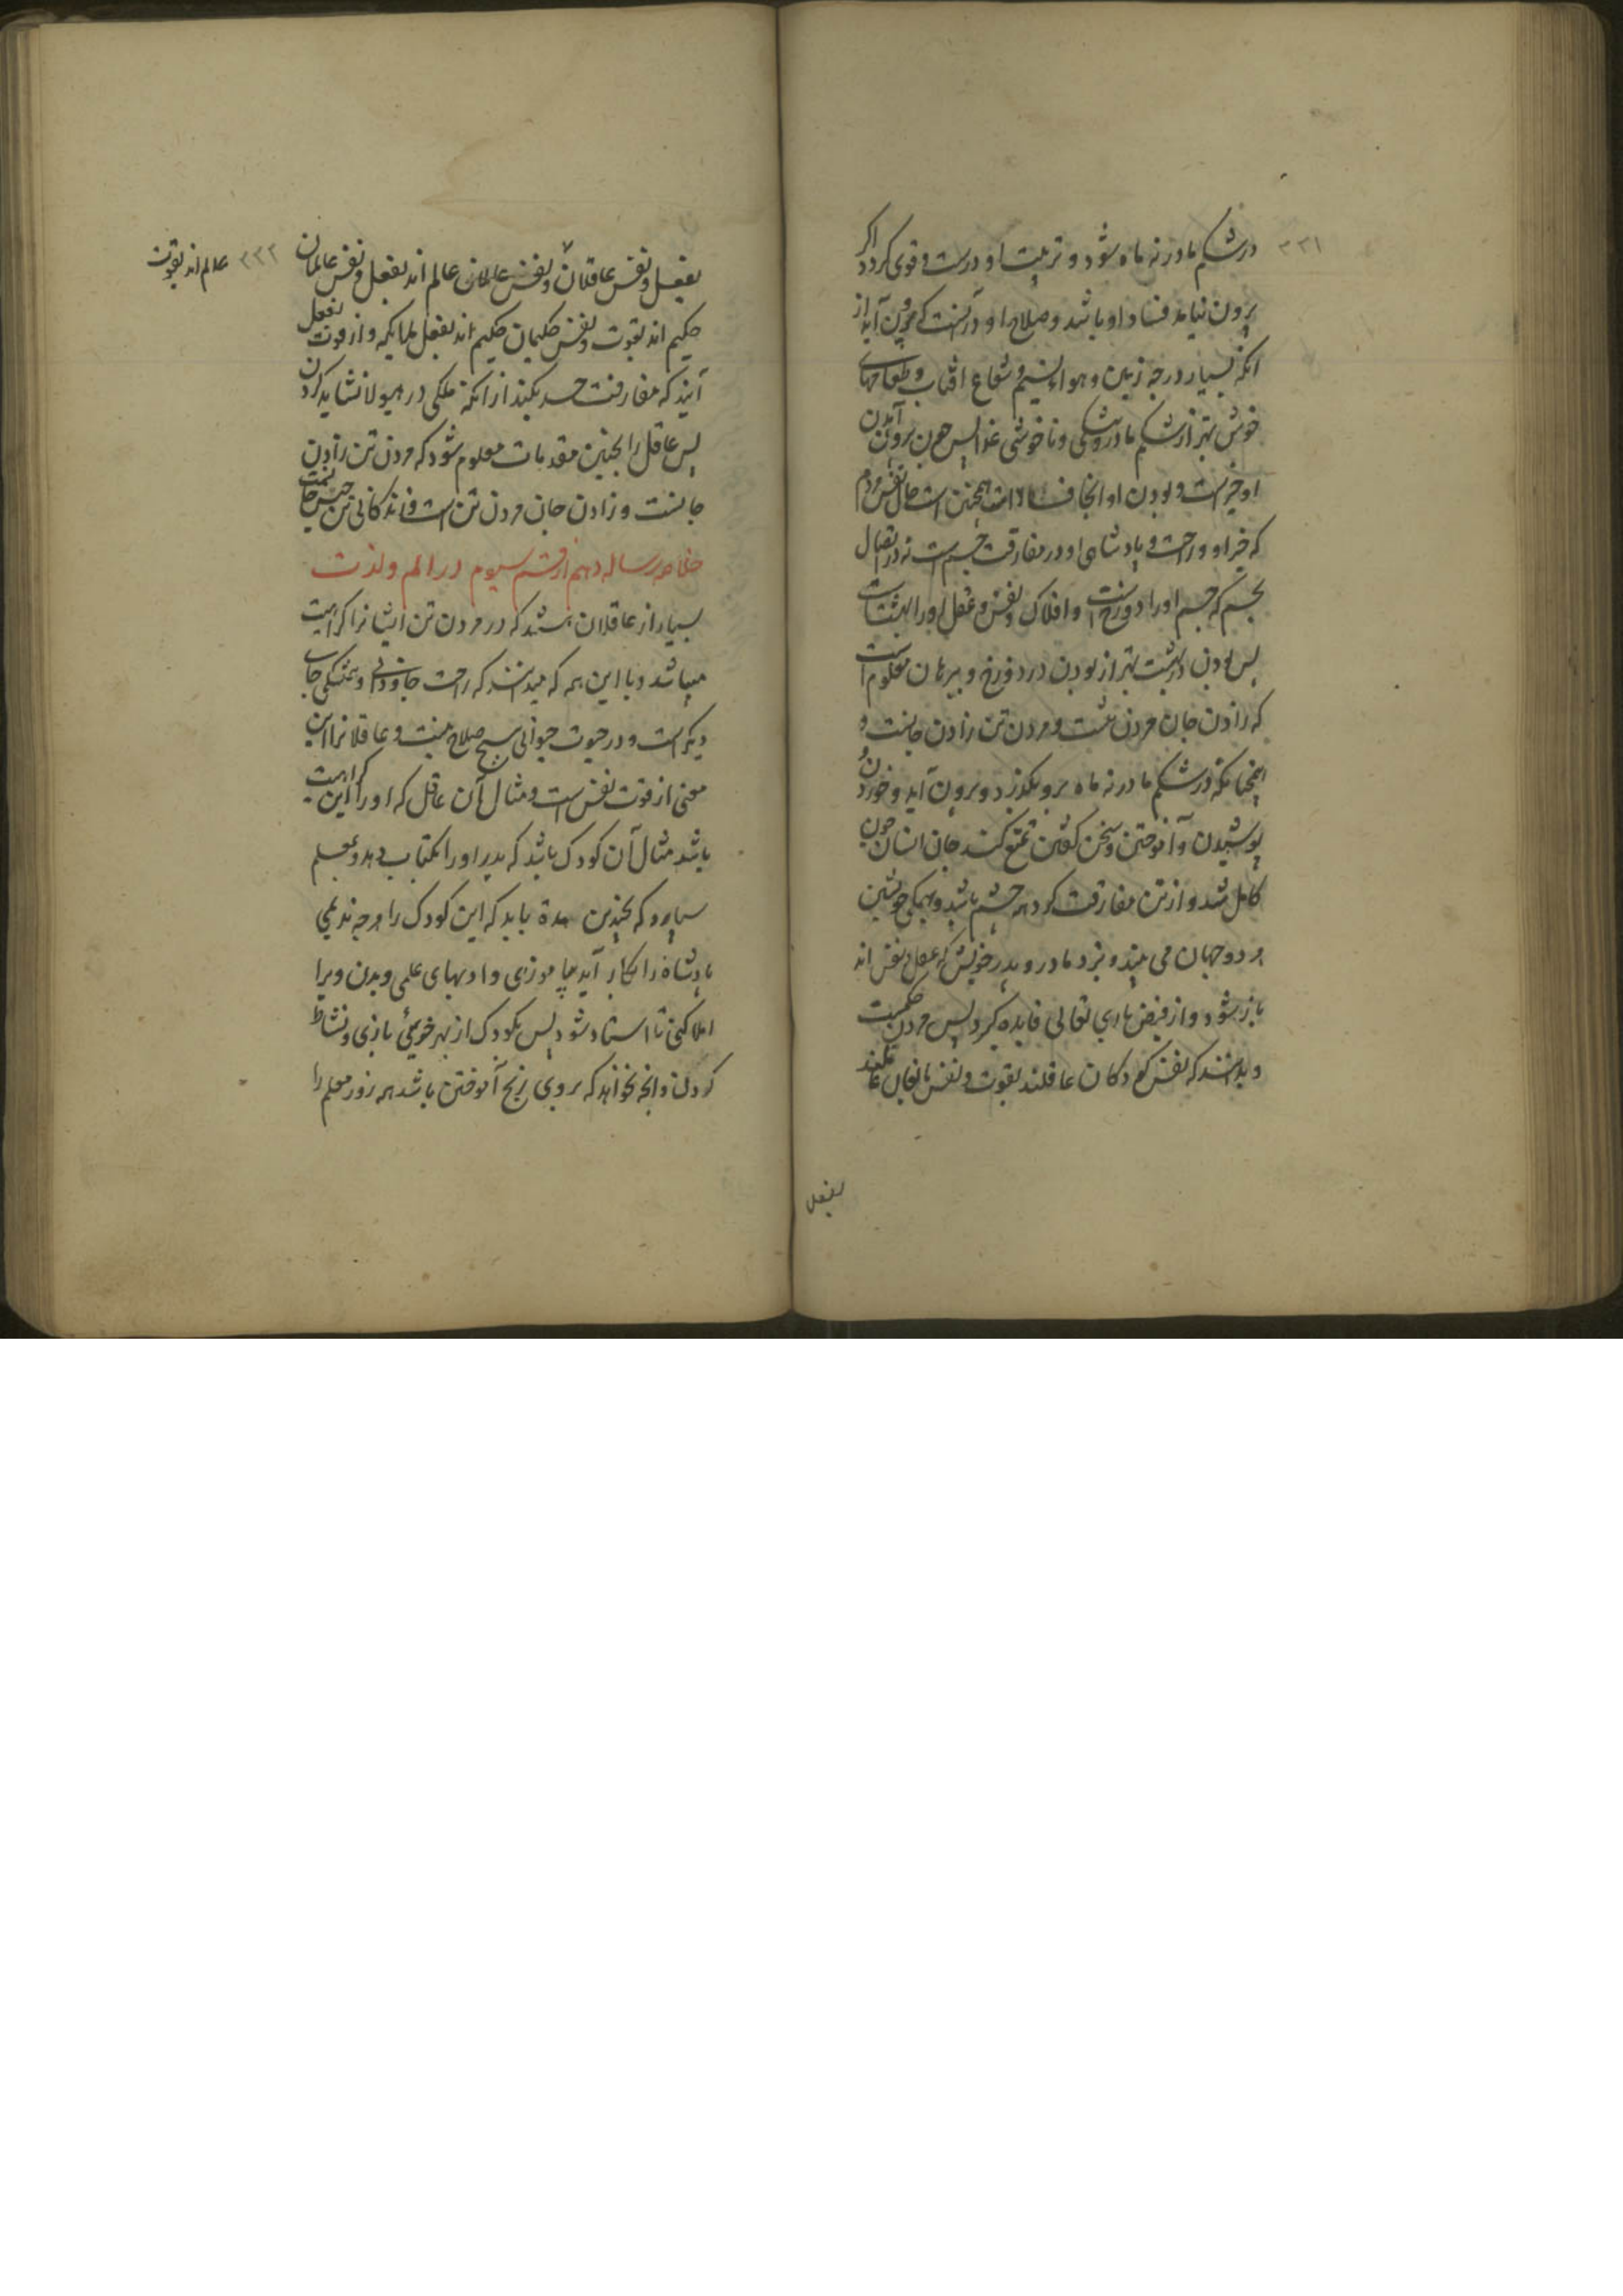 ۳۳۱
در شکم مادر نه ماه شود و تربیت او درست و قوی کردد اکر
برون نیاید فساد او باشد و صلاح او در آنست که برون آید از
انکه بسیار درجه زمین و هواء نسیم و شعاع افتاب و طعامهای
خوش بهتر از شکم مادر و ناخوشی غذا پس چون برون آمدن
او خیر است و بودن او انجا فساد است همچنین است حال نفس مردم
که خیر او و راحت و پادشاهی او در مفارقت جسم است نه در اتصال
بجسم که جسم او را دوزخ است و افلاک و نفس و عقل او را بهشتست
پس بودن در بهشت بهتر از بودن در دوزخ و ببرهان معلوم است
که زادن جان مردن تنست و مردن تن زادن جانست و
همچنانکه در شکم مادر نه ماه برو بکذرد و برون آید و خوردن و
پوشیدن و آموختن و سخن کفتن تمتع کند جان انسان چون
کامل شد و از تن مفارقت کرد همه چشم باشد و بهمکی خویشتن
هر دو جهان می بیند و نزد مادر و پدر خویش که عقل و نفس اند
باز شود و از فیض باری تعالی فایده کیرد پس مردن حکمتست
و بدانند که نفس کودکان عاقلند بقوت و نفس بالغان عاقلند
بفعل
۳۳۲
بفعل و نفس عاقلان و نفس عالمان عالم اند بفعل و نفس عالمان
عالم اند بقوت
حکیم اند بقوت و نفس حکیمان حکیم اند بفعل ملایکه و از قوت بفعل
آیند که مفارقت جسد بکنند از انکه ملکی در هیولا نشاید کردن
پس عاقل را بچنین مقدمات معلوم شود که مردن تن زادن
جانست و زادن جان مردن تن است و زندکانی تن حبس جانست
خلاصه رساله دهم از قسم سیوم در الم و لذت
بسیار از عاقلان هستند که در مردن تن ایشانرا کراهیت
میباشد و با این همه که میدانند که راحت جاودانی و همیشکی جای
دیکر است و در حیوت حیوانی هیچ صلاح نیست و عاقلانرا این
معنی از قوت نفس است و مثال آن عاقل که او را این کراهیت
باشد مثال آن کودک باشد که پدر او را بکتاب دهد و بمعلم
سپارد که بچندین مدة باید که این کودک را هرچه ندیمی
پادشاه را بکار آید بیاموزی و ادبهای علمی و بدین ویرا
املا کنی تا استاد شود پس کودک از بهر خوشی بازی و نشاط
کودکی و انچه نخواهد که بروی رنج آموختن باشد هر روز معلم را